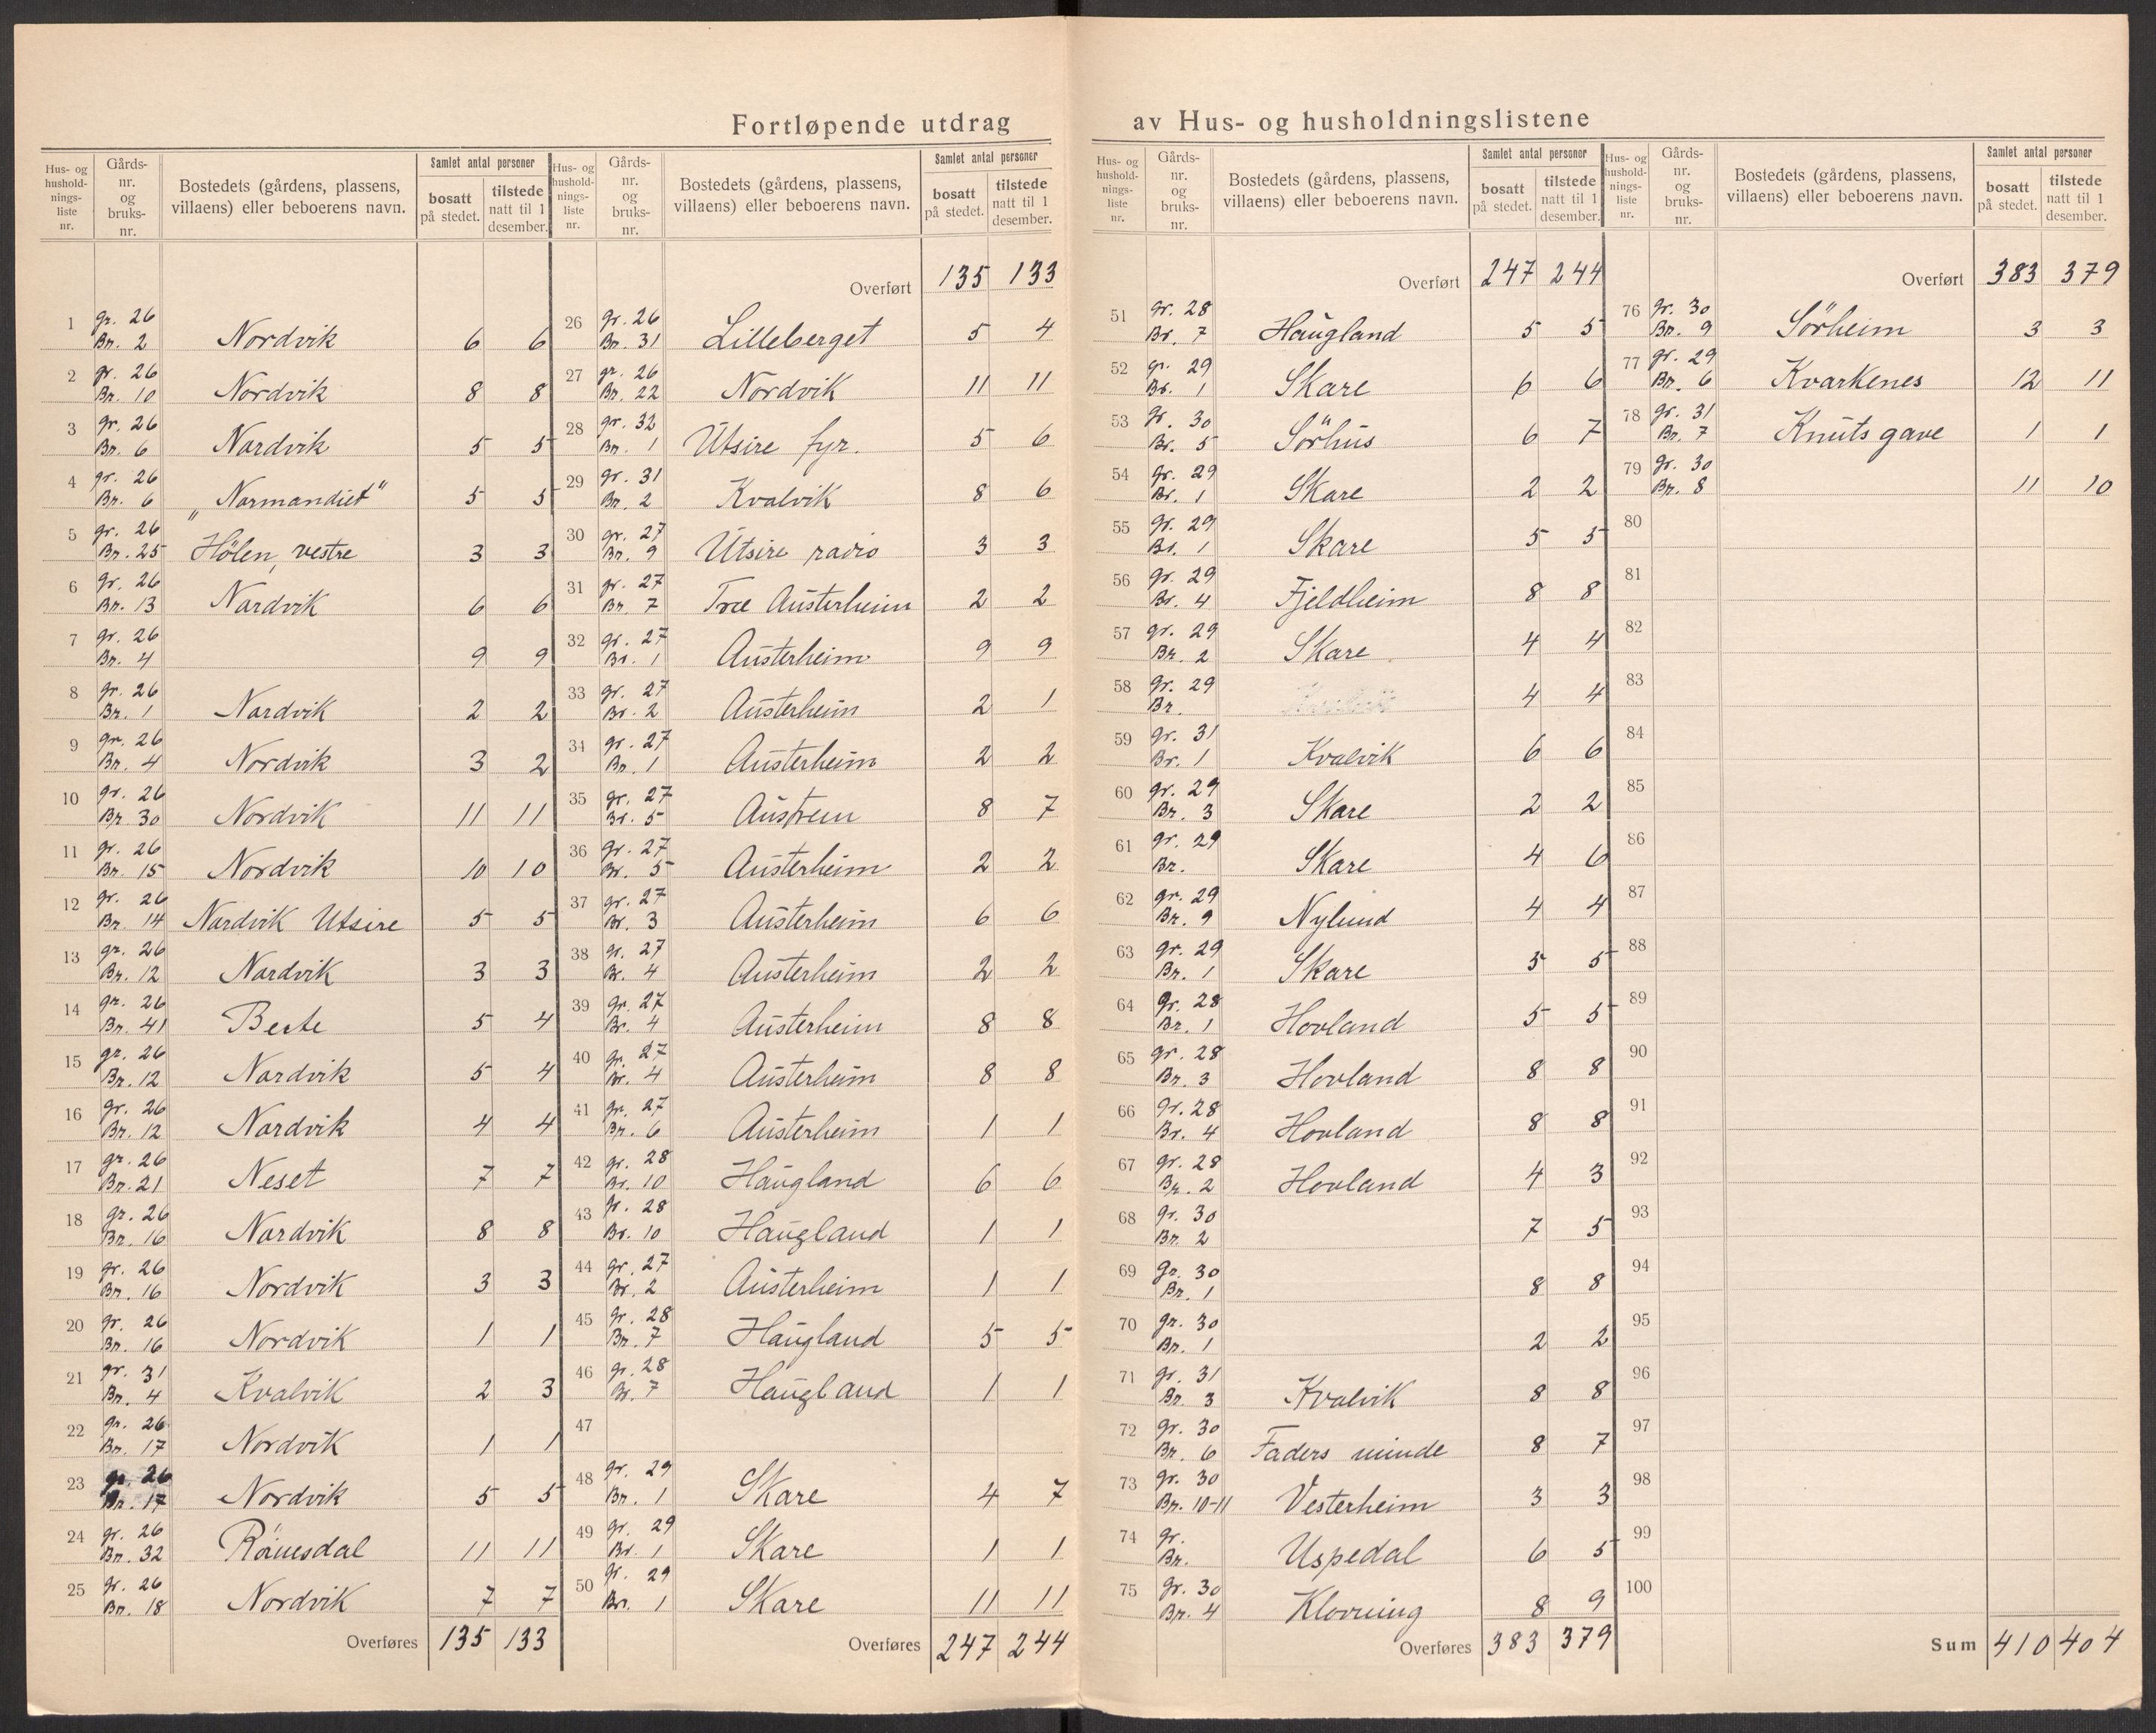 Fortløpende utdrag av Hus- og husholdningslistene
Hus- og hushold-nings-liste nr. Gårds-nr. og bruks-nr. Bostedets (gårdens, plassens, villaens) eller beboerens navn. Samlet antal personer bosatt på stedet. tilstede natt til 1 desember.
1 gr. 26 Br. 2 Nordvik 6 6
2 gr. 26 Br. 10 Nordvik 8 8
3 gr. 26 Br. 6 Nordvik 5 5
4 gr. 26 Br. 6 „Normandiet" 5 5
5 gr. 26 Br. 25 Hölen, vestre 3 3
6 gr. 26 Br. 13 Nordvik 6 6
7 gr. 26 Br. 4 9 9
8 gr. 26 Br. 1 Nordvik 2 2
9 gr. 26 Br. 4 Nordvik 3 2
10 gr. 26 Br. 30 Nordvik 11 11
11 gr. 26 Br. 15 Nordvik 10 10
12 gr. 26 Br. 14 Nordvik Utsire 5 5
13 gr. 26 Br. 12 Nordvik 3 3
14 gr. 26 Br. 41 Berte 5 4
15 gr. 26 Br. 12 Nordvik 5 4
16 gr. 26 Br. 12 Nordvik 4 4
17 gr. 26 Br. 21 Neset 7 7
18 gr. 26 Br. 16 Nordvik 8 8
19 gr. 26 Br. 16 Nordvik 3 3
20 gr. 26 Br. 16 Nordvik 1 1
21 gr. 31 Br. 4 Kvalvik 2 3
22 gr. 26 Br. 17 Nordvik 1 1
23 gr. 26 Br. 17 Nordvik 5 5
24 gr. 26 Br. 32 Rönesdal 11 11
25 gr. 26 Br. 18 Nordvik 7 7
Overføres 135 133
Hus- og hushold-nings-liste nr. Gårds-nr. og bruks-nr. Bostedets (gårdens, plassens, villaens) eller beboerens navn. Samlet antal personer bosatt på stedet. tilstede natt til 1 desember.
Overført 135 133
26 gr. 26 Br. 31 Lilleberget 5 4
27 gr. 26 Br. 22 Nordvik 11 11
28 gr. 32 Br. 1 Utsire fyr. 5 6
29 gr. 31 Br. 2 Kvalvik 8 6
30 gr. 27 Br. 9 Utsire radio 3 3
31 gr. 27 Br. 7 Træ Austerheim 2 2
32 gr. 27 Br. 1 Austerheim 9 9
33 gr. 27 Br. 2 Austerheim 2 1
34 gr. 27 Br. 1 Austerheim 2 2
35 gr. 27 Br. 5 Austrem 8 7
36 gr. 27 Br. 5 Austerheim 2 2
37 gr. 27 Br. 3 Austerheim 6 6
38 gr. 27 Br. 4 Austerheim 2 2
39 gr. 27 Br. 4 Austerheim 8 8
40 gr. 27 Br. 4 Austerheim 8 8
41 gr. 27 Br. 6 Austerheim 1 1
42 gr. 28 Br. 10 Haugland 6 6
43 gr. 28 Br. 10 Haugland 1 1
44 gr. 27 Br. 2 Austerheim 1 1
45 gr. 28 Br. 7 Haugland 5 5
46 gr. 28 Br. 7 Haugland 1 1
47
48 gr. 29 Br. 1 Skare 4 7
49 gr. 29 Br. 1 Skare 1 1
50 gr. 29 Br. 1 Skare 11 11
Overføres 247 244
Hus- og hushold-nings-liste nr. Gårds-nr. og bruks-nr. Bostedets (gårdens, plassens, villaens) eller beboerens navn. Samlet antal personer bosatt på stedet. tilstede natt til 1 desember.
Overført 247 244
51 gr. 28 Br. 7 Haugland 5 5
52 gr. 29 Br. 1 Skare 6 6
53 gr. 30 Br. 5 Sörhus 6 7
54 gr. 29 Br. 1 Skare 2 2
55 gr. 29 Br. 1 Skare 5 5
56 gr. 29 Br. 4 Fjeldheim 8 8
57 gr. 29 Br. 2 Skare 4 4
58 gr. 29 Br. 4 4
59 gr. 31 Br. 1 Kvalvik 6 6
60 gr. 29 Br. 3 Skare 2 2
61 gr. 29 Br. Skare 4 6
62 gr. 29 Br. 9 Nylund 4 4
63 gr. 29 Br. 1 Skare 5 5
64 gr. 28 Br. 1 Hovland 5 5
65 gr. 28 Br. 3 Hovland 8 8
66 gr. 28 Br. 4 Hovland 8 8
67 gr. 28 Br. 2 Hovland 4 3
68 gr. 30 Br. 2 7 5
69 gr. 30 Br. 1 8 8
70 gr. 30 Br. 1 2 2
71 gr. 31 Br. 3 Kvalvik 8 8
72 gr. 30 Br. 6 Faders minde 8 7
73 gr. 30 Br. 10-11 Vesterheim 3 3
74 gr. Br. Uspedal 6 5
75 gr. 30 Br. 4 Klovning 8 9
Overføres 383 379
Hus- og hushold-nings-liste nr. Gårds-nr. og bruks-nr. Bostedets (gårdens, plassens, villaens) eller beboerens navn. Samlet antal personer bosatt på stedet. tilstede natt til 1 desember.
Overført 383 379
76 gr. 30 Br. 9 Sörheim 3 3
77 gr. 29 Br. 6 Kvarkenes 12 11
78 gr. 31 Br. 7 Knuts gave 1 1
79 gr. 30 Br. 8 11 10
80
81
82
83
84
85
86
87
88
89
90
91
92
93
94
95
96
97
98
99
100
Sum 410 404